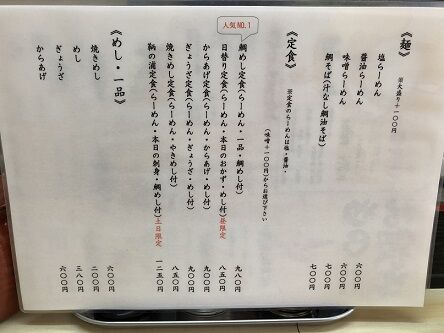 《麺》
※大盛り+一〇〇円
塩らーめん 六〇〇円
醤油らーめん 六〇〇円
味噌らーめん 七〇〇円
鯛そば(汁なし鯛油そば) 七〇〇円
《定食》
※定食のらーめんは塩・醤油・
(味噌+一〇〇円)からお選び下さい
人気NO.1
鯛めし定食(らーめん・一品・鯛めし付) 九八〇円
日替り定食(らーめん・本日のおかず・めし付)昼限定 八五〇円
からあげ定食(らーめん・からあげ・めし付) 九〇〇円
ぎょうざ定食(らーめん・ぎょうざ・めし付) 九〇〇円
焼きめし定食(らーめん・やきめし付) 八五〇円
鞆の浦定食(らーめん・本日の刺身・鯛めし付)土日限定 一二五〇円
《めし・一品》
焼きめし 六〇〇円
めし 二〇〇円
ぎょうざ 三八〇円
からあげ 六〇〇円